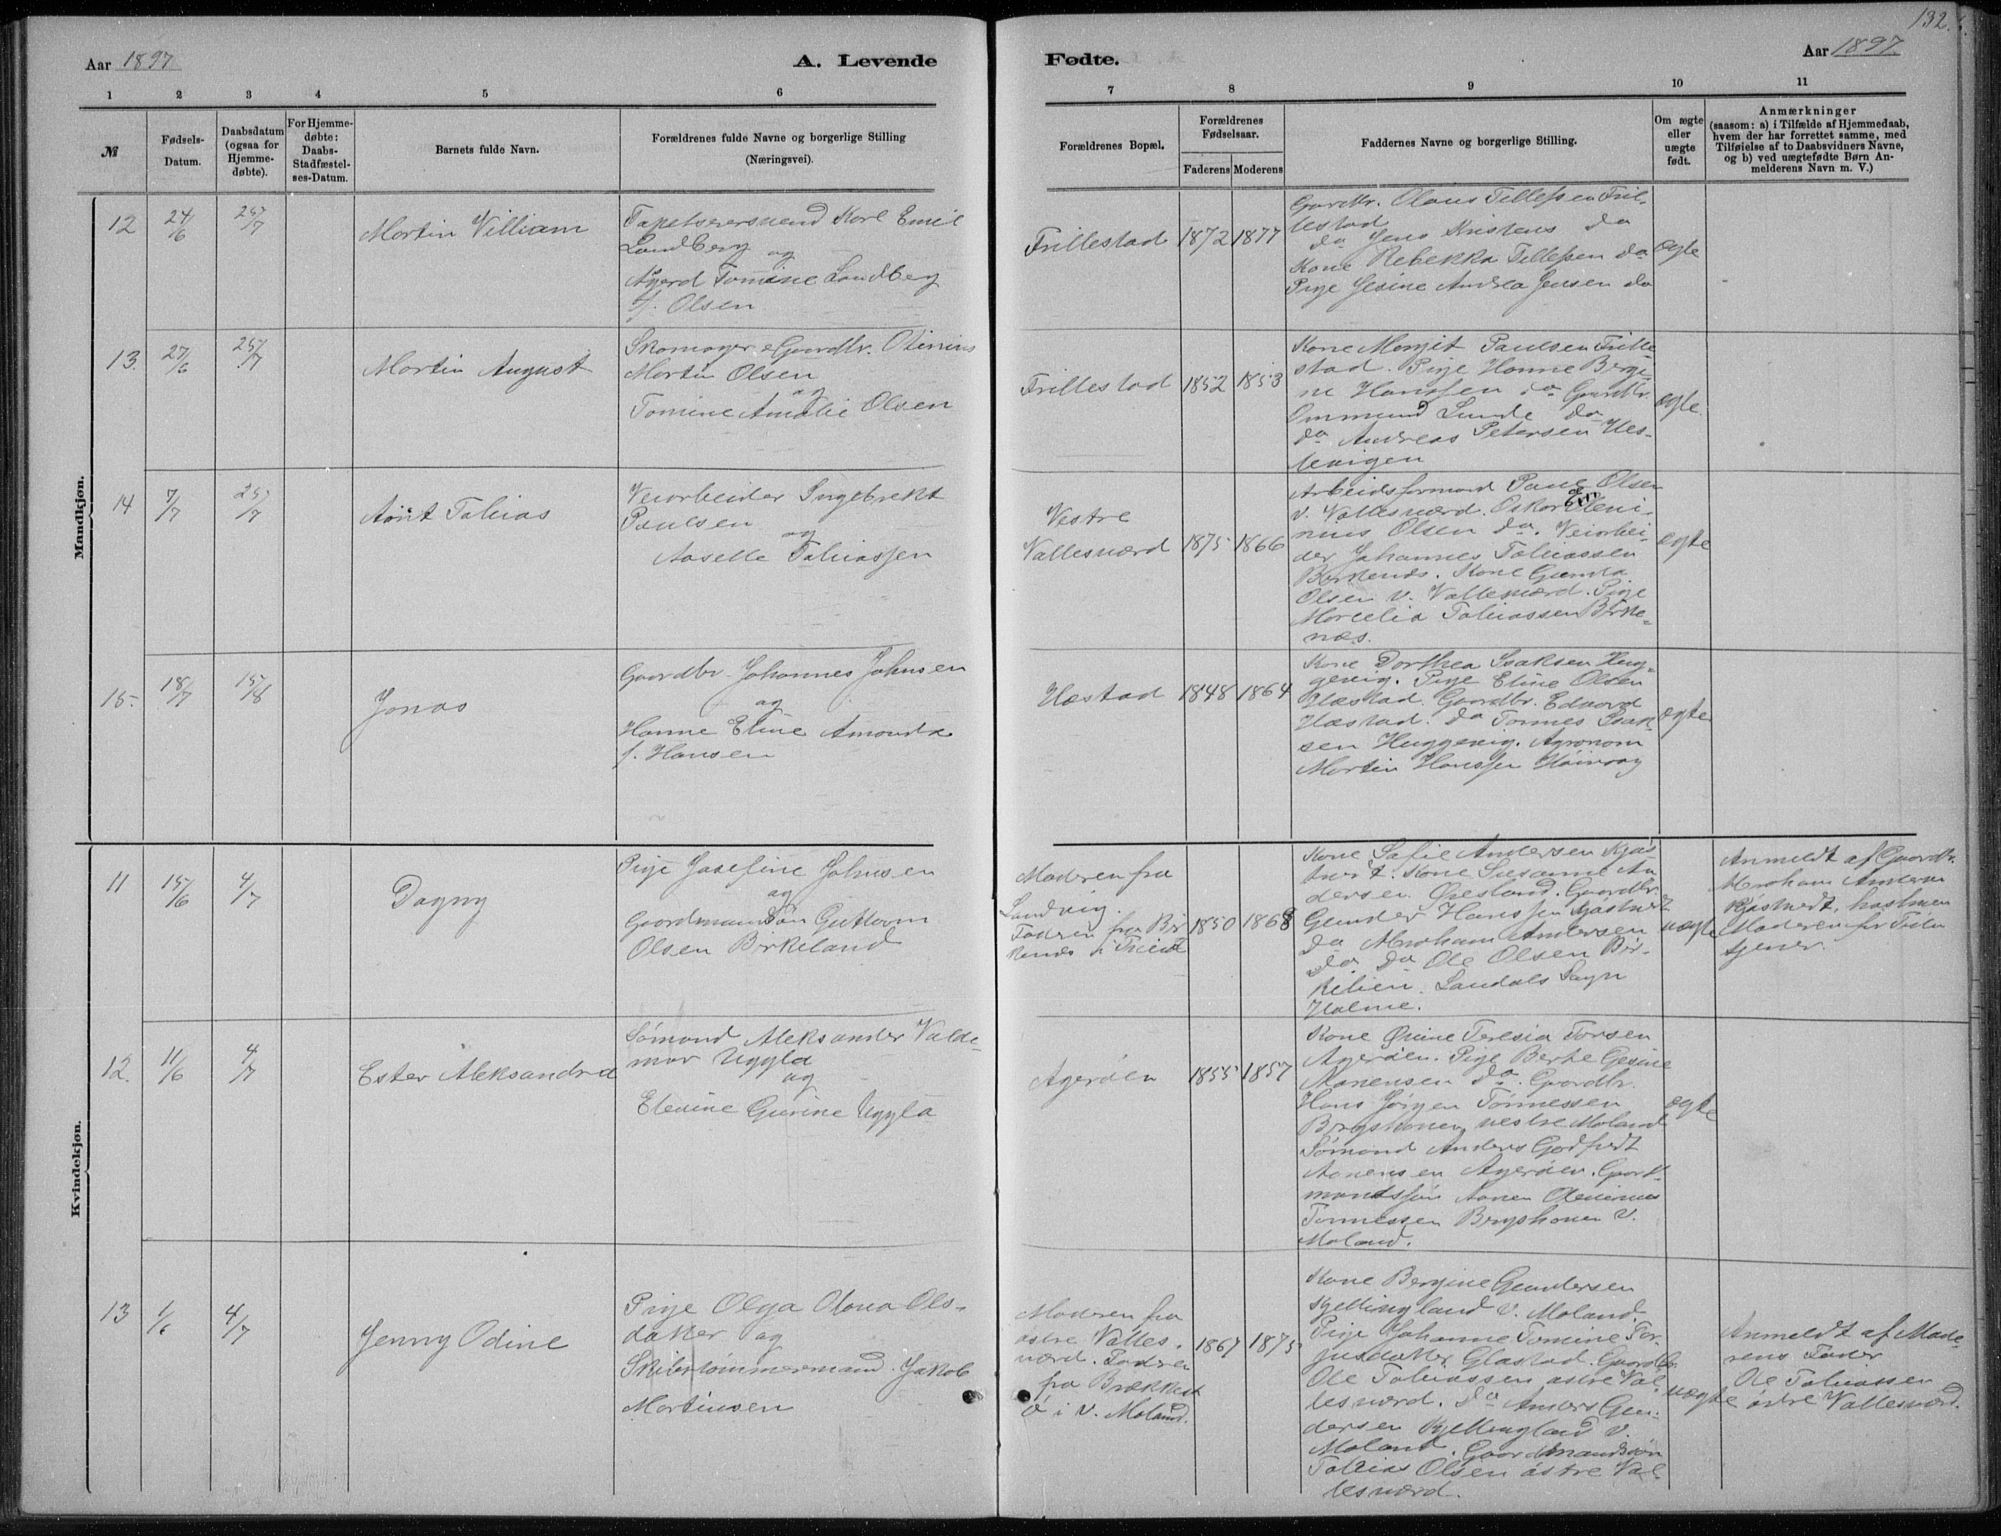 132.
Aar 1897
A. Levende
Fødte.
Aar 1897
1 2 3 4 5 6 7 8 9 10 11
№
Fødsels-
Datum.
Daabsdatum
(ogsaa for
Hjemme-
døbte).
For Hjemme-
døbte:
Daabs-
Stadfæstel-
ses-Datum.
Barnets fulde Navn.
Forældrenes fulde Navne og borgerlige Stilling
(Næringsvei).
Forældrenes Bopæl.
Forældrenes
Fødselsaar.
Faderens Moderens
Faddernes Navne og borgerlige Stilling.
Om ægte
eller
uægte
født.
Anmærkninger
(saasom: a) i Tilfælde af Hjemmedaab,
hvem der har forrettet samme, med
Tilføielse af to Daabsvidners Navne,
og b) ved uægtefødte Børn An-
melderens Navn m. V.)
Mandkjøn.
12
24/6
25/7
Martin Villiam
Tapetserersvend Karl Emil
Landberg og
Agerd Tomine Landberg
f. Olsen
Frillestad
1872 1877
Gaardbr. Olaus Tellefsen Fril-
lestad
do Jens Kristens do
Kone Rebekka Tellefsen do
Pige Jesine Andrea Jensen do
ægte
13.
27/6
25/7
Martin August
Skomager & Gaardbr. Olenius
Martin Olsen
og
Tomine Amalie Olsen
Frillestad
1852 1853
Kone Margit Paulsen Frille-
stad. Pige Hanne Bergi-
ne Hanssen do Gaardbr.
Ommund Lunde do
do Andreas Petersen Hes-
levigen
ægte
14
7/7
25/7
Arnt Tobias
Veiarbeider Ingebrekt
Paulsen
og
Aaselle Tobiassen
Vestre
Vallesværd
1875 1866
Arbeidsformand Paul Olsen
v. Vallesværd. Oskar Oleni-
nius Olsen do. Veiarbei-
der Johannes Tobiassen
Birkenæs. Kone Gunda
Olsen v. Vallesværd. Pige
Marcelia Tobiassen Birke-
næs.
ægte
15.
18/7
15/8
Jonas
Gaardbr. Johannes Johnsen
og
Hanne Eline Amanda
f. Hansen
Hæstad
1848 1864
Kone Dorthea Isaksen Hug-
gevig. Pige Eline Olsen
Hæstad. Gaardbr. Edvard
Hæstad. do Tønnes Isak-
sen Huggevig. Agronom
Martin Hanssen Høivaag
ægte
Kvindekjøn.
11
15/6
4/7
Dagny
Pige Josefine Johnsen
og
Gaardmandssøn Guttorm
Olsen Birkeland
Moderen fra
Landvig.
Faderen fra Bir
kenæs i Treid
1850 1868
Kone Sofie Andersen Kjøs-
tvedt. Kone Susanne An-
dersen Øiesland. Gaardbr.
Gunder Hanssen Kjøstvedt
do Abraham Andersen
do do Ole Olsen Bir-
kelien. Landals Sogn
Halme.
uægte
Anmeldt af Gaardbr.
Abraham Andersen
Kjøstvedt, hos hvem
Moderen for Tiden
tjener.
12.
11/6
4/7
Ester Aleksandra
Sømand Aleksander Valde-
mar Uggla
og
Elevine Gurine Uggla
Agerøen
1855 1857
Kone Oline Teresia Torsen
Agerøen. Pige Berte Gesine
Aanensen do. Gaardbr.
Hans Jørgen Tønnessen
Bergshaven vestre Moland
Sømand Anders Godfredt
Aanensen Agerøen. Gaard-
mandssøn Aanen Olenius
Tønnessen Bergshaven V.
Moland.
ægte
13
1/6
4/7
Jenny Odine
Pige Olga Olava Ols-
datter og
Skibstømmermand Jakob
Martinsen
Moderen fra
østre Valles-
værd. Faderen
fra Brækkest
ø i V. Moland.
1867 1875
Kone Bergine Gundersen
Kjellingland V. Moland.
Pige Johanne Tomine Tor-
jusdatter Glastad. Gaardbr.
Ole Tobiassen østre Val-
lesværd. do Anders Gun-
dersen Kjellingland V.
Moland. Gaardmandssøn
Tobias Olsen østre Val-
lesværd.
uægte
Anmeldt af Mode-
rens Fader
Ole Tobiassen
østre Vallesværd.